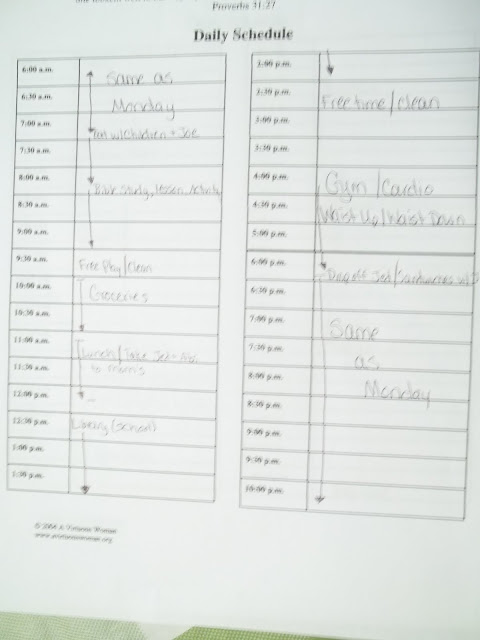 Proverbs 31:27
Daily Schedule
6:00 a.m.
Same as
6:30 a.m.
Monday
7:00 a.m.
w/Children + Joe
7:30 a.m.
8:00 a.m.
Bible Study, Lesson, Activity
8:30 a.m.
9:00 a.m.
9:30 a.m.
Free Play/Clean
10:00 a.m.
Groceries
10:30 a.m.
11:00 a.m.
Lunch/Take
11:30 a.m.
to mom's
12:00 p.m.
12:30 p.m.
Library (school)
1:00 p.m.
1:30 p.m.
2:00 p.m.
2:30 p.m.
Free time/clean
3:00 p.m.
3:30 p.m.
4:00 p.m.
Gym/Cardio
4:30 p.m.
Waist Up/Waist Down
5:00 p.m.
6:00 p.m.
6:30 p.m.
7:00 p.m.
Same
7:30 p.m.
as
8:00 p.m.
Monday
8:30 p.m.
9:00 p.m.
9:30 p.m.
10:00 p.m.
© 2004 A Virtuous Woman
www.avirtuouswoman.org